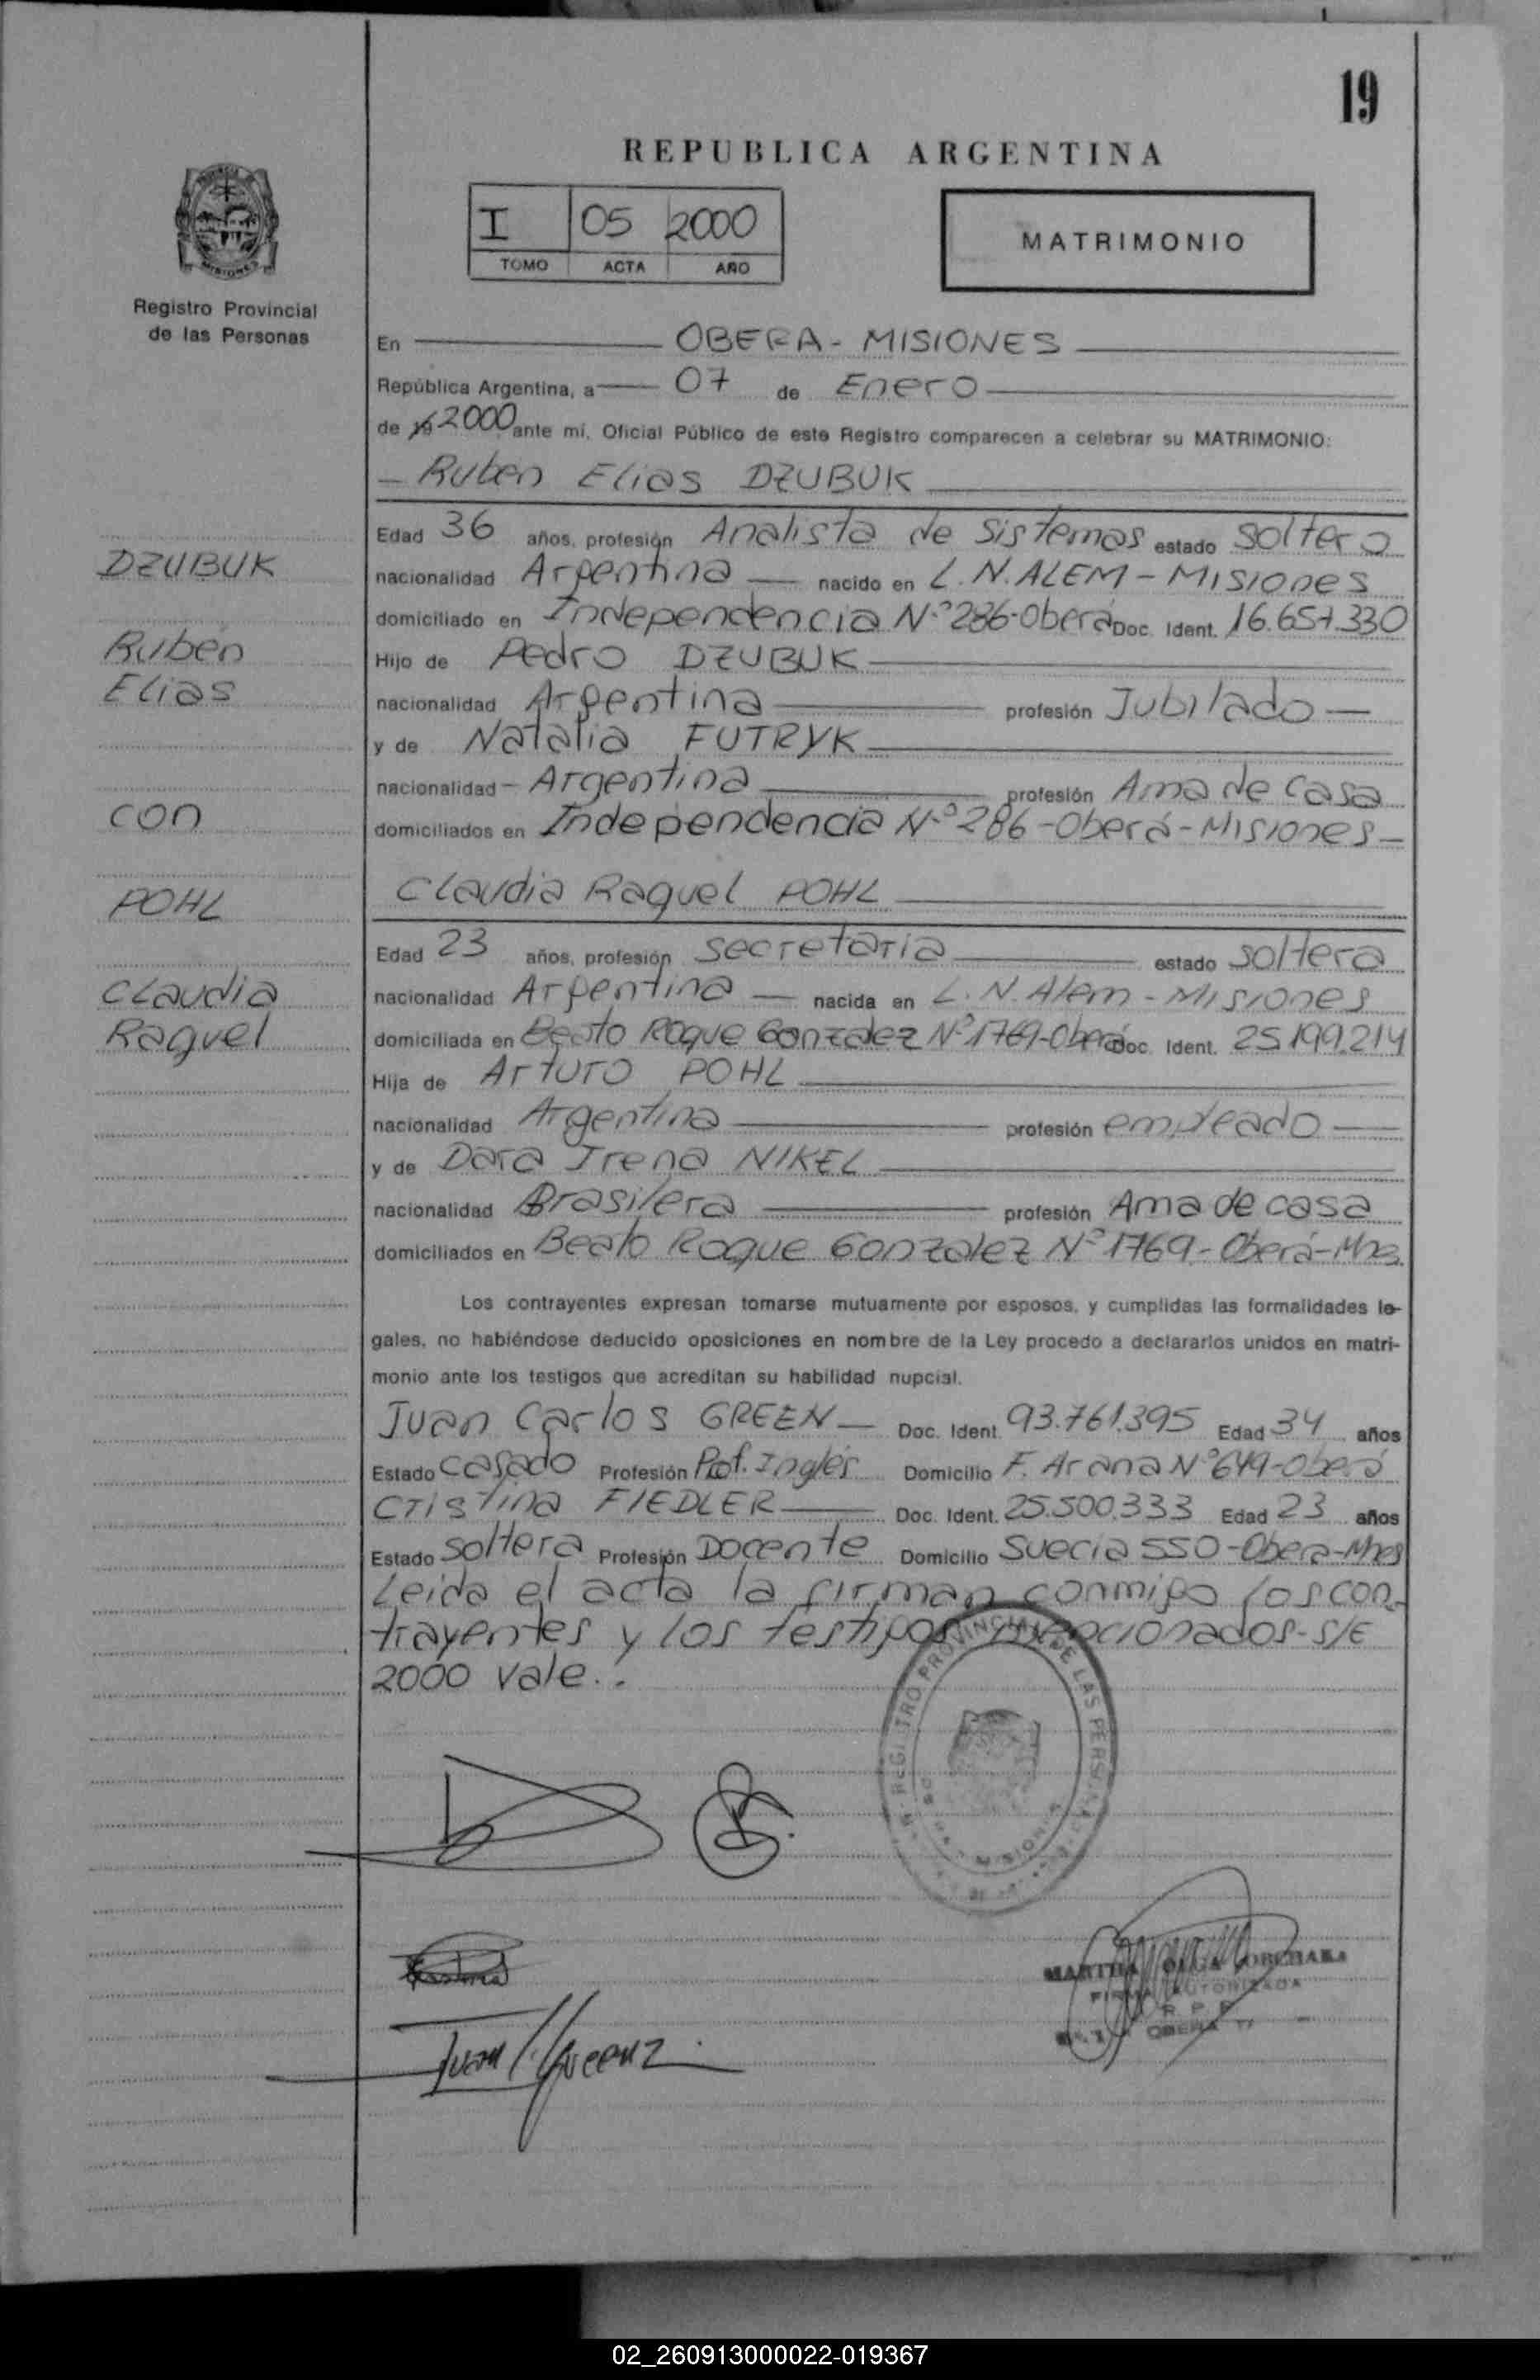 19
REPUBLICA ARGENTINA
I 05 2000
TOMO ACTA AÑO
MATRIMONIO
MISIONES
Registro Provincial
de las Personas
En OBERA - MISIONES
República Argentina, a 07 de Enero
de 19 2000 ante mí, Oficial Público de este Registro comparecen a celebrar su MATRIMONIO:
- Ruben Elias DZUBUK
Edad 36 años, profesión Analista de Sistemas estado soltero
DZUBUK
nacionalidad Argentina - nacido en L.N.ALEM - Misiones
domiciliado en Independencia N.º 286-Oberá Doc. Ident. 16.657.330
Rubén
Hijo de Pedro DZUBUK
Elias
nacionalidad Argentina profesión Jubilado -
y de Natalia FUTRYK
nacionalidad - Argentina profesión Ama de casa
con
domiciliados en Independencia N.º 286 - Oberá - Misiones -
POHL
Claudia Raquel POHL
Edad 23 años, profesión secretaria estado soltera
Claudia
nacionalidad Argentina - nacida en L.N. Alem - Misiones
Raquel
domiciliada en Beato Roque Gonzalez Nº 1769-Oberá Doc. Ident. 25.199.214
Hija de Arturo POHL
nacionalidad Argentina profesión empleado -
y de Dora Irena NIKEL
nacionalidad Brasilera profesión Ama de casa
domiciliados en Beato Roque Gonzalez Nº 1769 - Oberá - Mnes.
Los contrayentes expresan tomarse mutuamente por esposos, y cumplidas las formalidades le-
gales, no habiéndose deducido oposiciones en nombre de la Ley procedo a declararlos unidos en matri-
monio ante los testigos que acreditan su habilidad nupcial.
Juan Carlos GREEN - Doc. Ident. 93.761.395 Edad 34 años
Estado casado Profesión Prof. Inglés Domicilio F. Arana Nº 649-Oberá
Cristina FIEDLER Doc. Ident. 25.500.333 Edad 23 años
Estado soltera Profesión Docente Domicilio Suecia 550-Obera-Mnes
Leida el acta la firman conmigo los con-
trayentes y los testigos mencionados- s/E
2000 vale..
REGISTRO PROVINCIAL DE LAS PERS
MISIONES
Juan Green
MARTHA OLGA
FIRMA AUTORIZADA
R. P. P.
OBERA
02_260913000022-019367